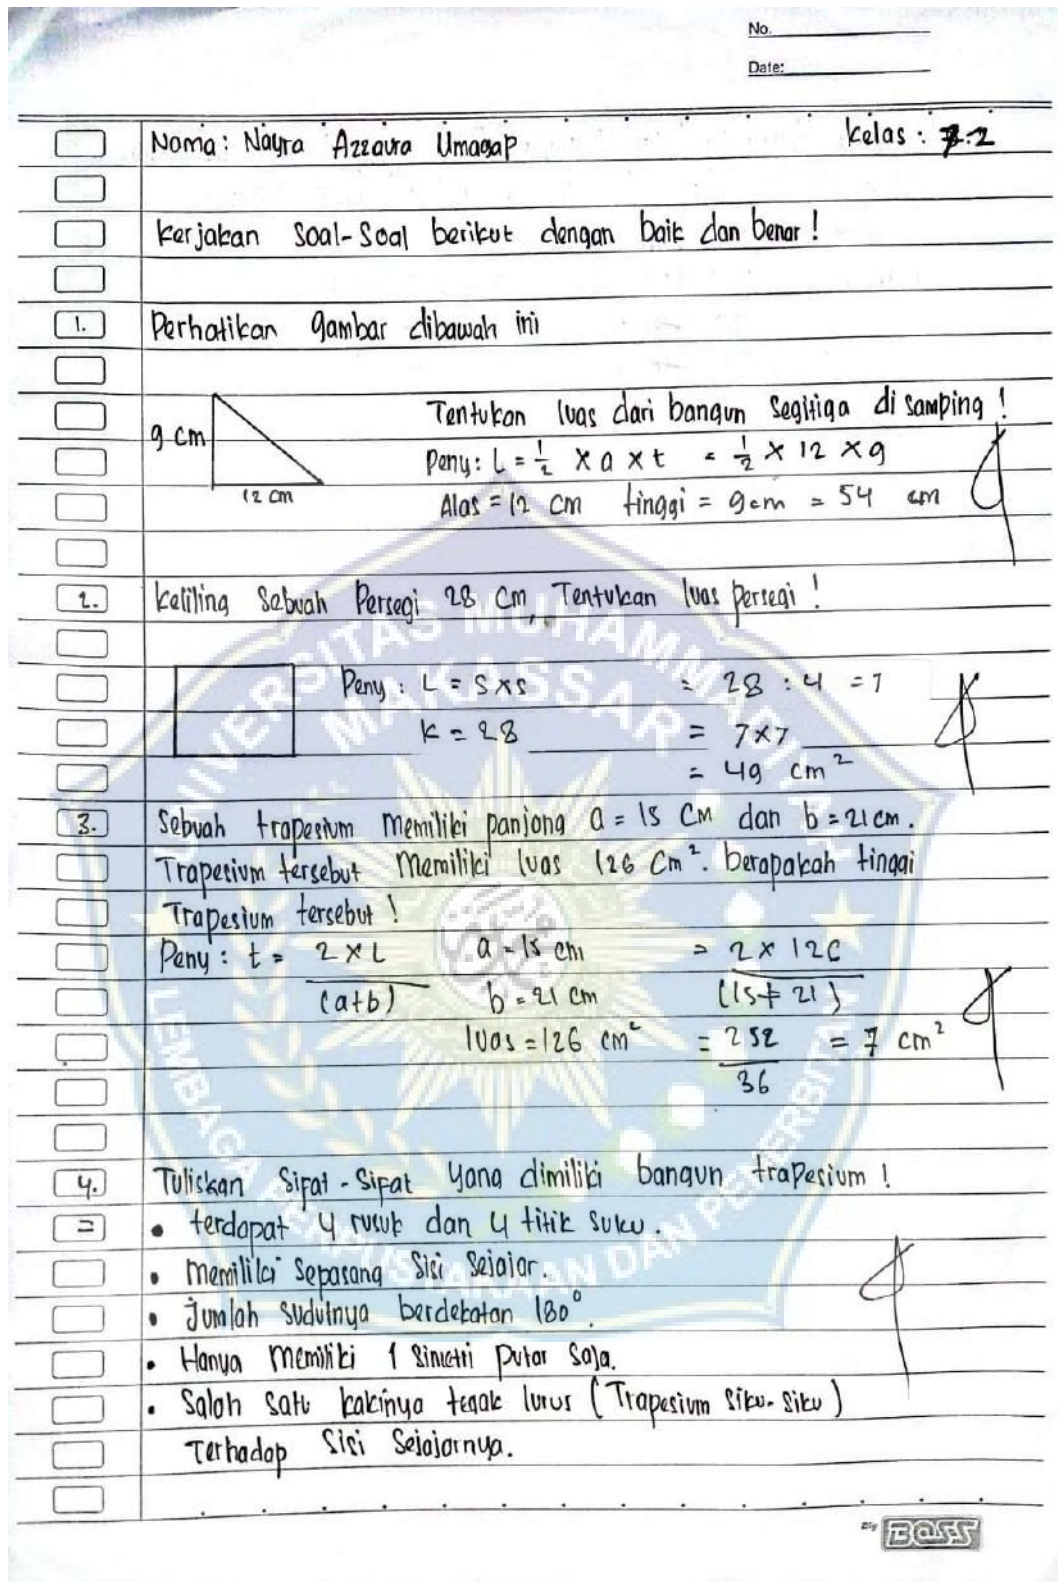 No.
Date:
Nama: Nayra Azzavra Umagap Kelas : 7.2
Kerjakan Soal-Soal berikut dengan baik dan benar !
1. Perhatikan gambar dibawah ini
Tentukan luas dari bangun Segitiga di samping !
9 cm
Peny: L = 1/2 x a x t = 1/2 x 12 x 9
12 cm
Alas = 12 cm tinggi = 9cm = 54 cm
2. Keliling Sebuah Persegi 28 cm, Tentukan luas persegi !
Peny : L = S x s = 28 : 4 = 7
K = 28 = 7x7
= 49 cm²
3. Sebuah trapesium memiliki panjang a = 15 cm dan b = 21 cm.
Trapesium tersebut Memiliki luas 126 cm². berapakah tinggi
Trapesium tersebut !
Peny : t = 2 x L a = 15 cm = 2 x 126
(a+b) b = 21 cm (15+21)
luas = 126 cm² = 252 = 7 cm²
36
4. Tuliskan Sifat-Sifat yang dimiliki bangun trapesium !
= • terdapat 4 rusuk dan 4 titik suku.
• memiliki sepasang Sisi Sejajar.
• jumlah sudutnya berdekatan 180°.
• Hanya memiliki 1 Simetri putar Saja.
• Salah satu kakinya tegak lurus (Trapesium Siku-Siku)
Terhadap Sisi Sejajarnya.
UNIVERSITAS MUHAMMADIYAH
MAKASSAR
LEMBAGA PERPUSTAKAAN DAN PENERBITAN
BOSS